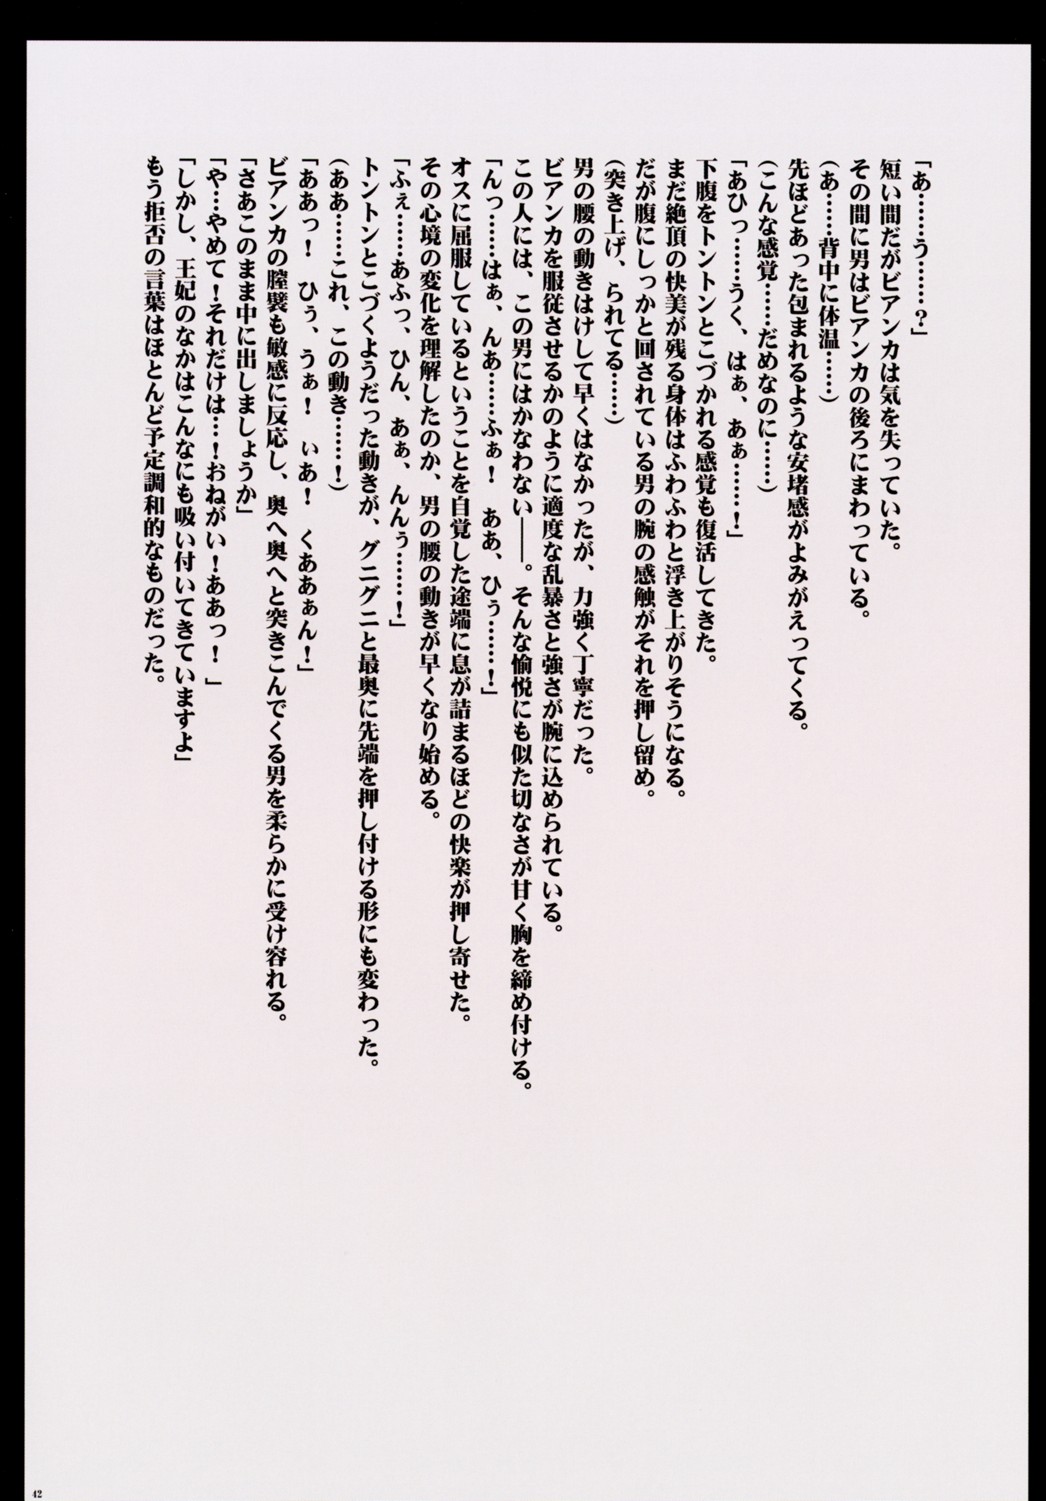 「あ……う……？」
短い間だがビアンカは気を失っていた。
その間に男はビアンカの後ろにまわっている。
（あ……背中に体温……）
先ほどあった包まれるような安堵感がよみがえってくる。
（こんな感覚……だめなのに……）
「あひっ……うく、はぁ、あぁ……！」
下腹をトントンとこづかれる感覚も復活してきた。
まだ絶頂の快美が残る身体はふわふわと浮き上がりそうになる。
だが腹にしっかと回されている男の腕の感触がそれを押し留め。
（突き上げ、られてる……）
男の腰の動きはけして早くはなかったが、力強く丁寧だった。
ビアンカを服従させるかのように適度な乱暴さと強さが腕に込められている。
この人には、この男にはかなわない――。そんな愉悦にも似た切なさが甘く胸を締め付ける。
「んっ……はぁ、んあ……ふぁ！　ああ、ひぅ……！」
オスに屈服しているということを自覚した途端に息が詰まるほどの快楽が押し寄せた。
その心境の変化を理解したのか、男の腰の動きが早くなり始める。
「ふぇ……あふっ、ひん、あぁ、んんぅ……！」
トントンとこづくようだった動きが、グニグニと最奥に先端を押し付ける形にも変わった。
（ああ……これ、この動き……！）
「ああっ！　ひぅ、うぁ！　ぃあ！　くああぁん！」
ビアンカの膣襞も敏感に反応し、奥へ奥へと突きこんでくる男を柔らかに受け容れる。
「さあこのまま中に出しましょうか」
「や…やめて！それだけは…！おねがい！ああっ！」
「しかし、王妃のなかはこんなにも吸い付いてきていますよ」
もう拒否の言葉はほとんど予定調和的なものだった。
42